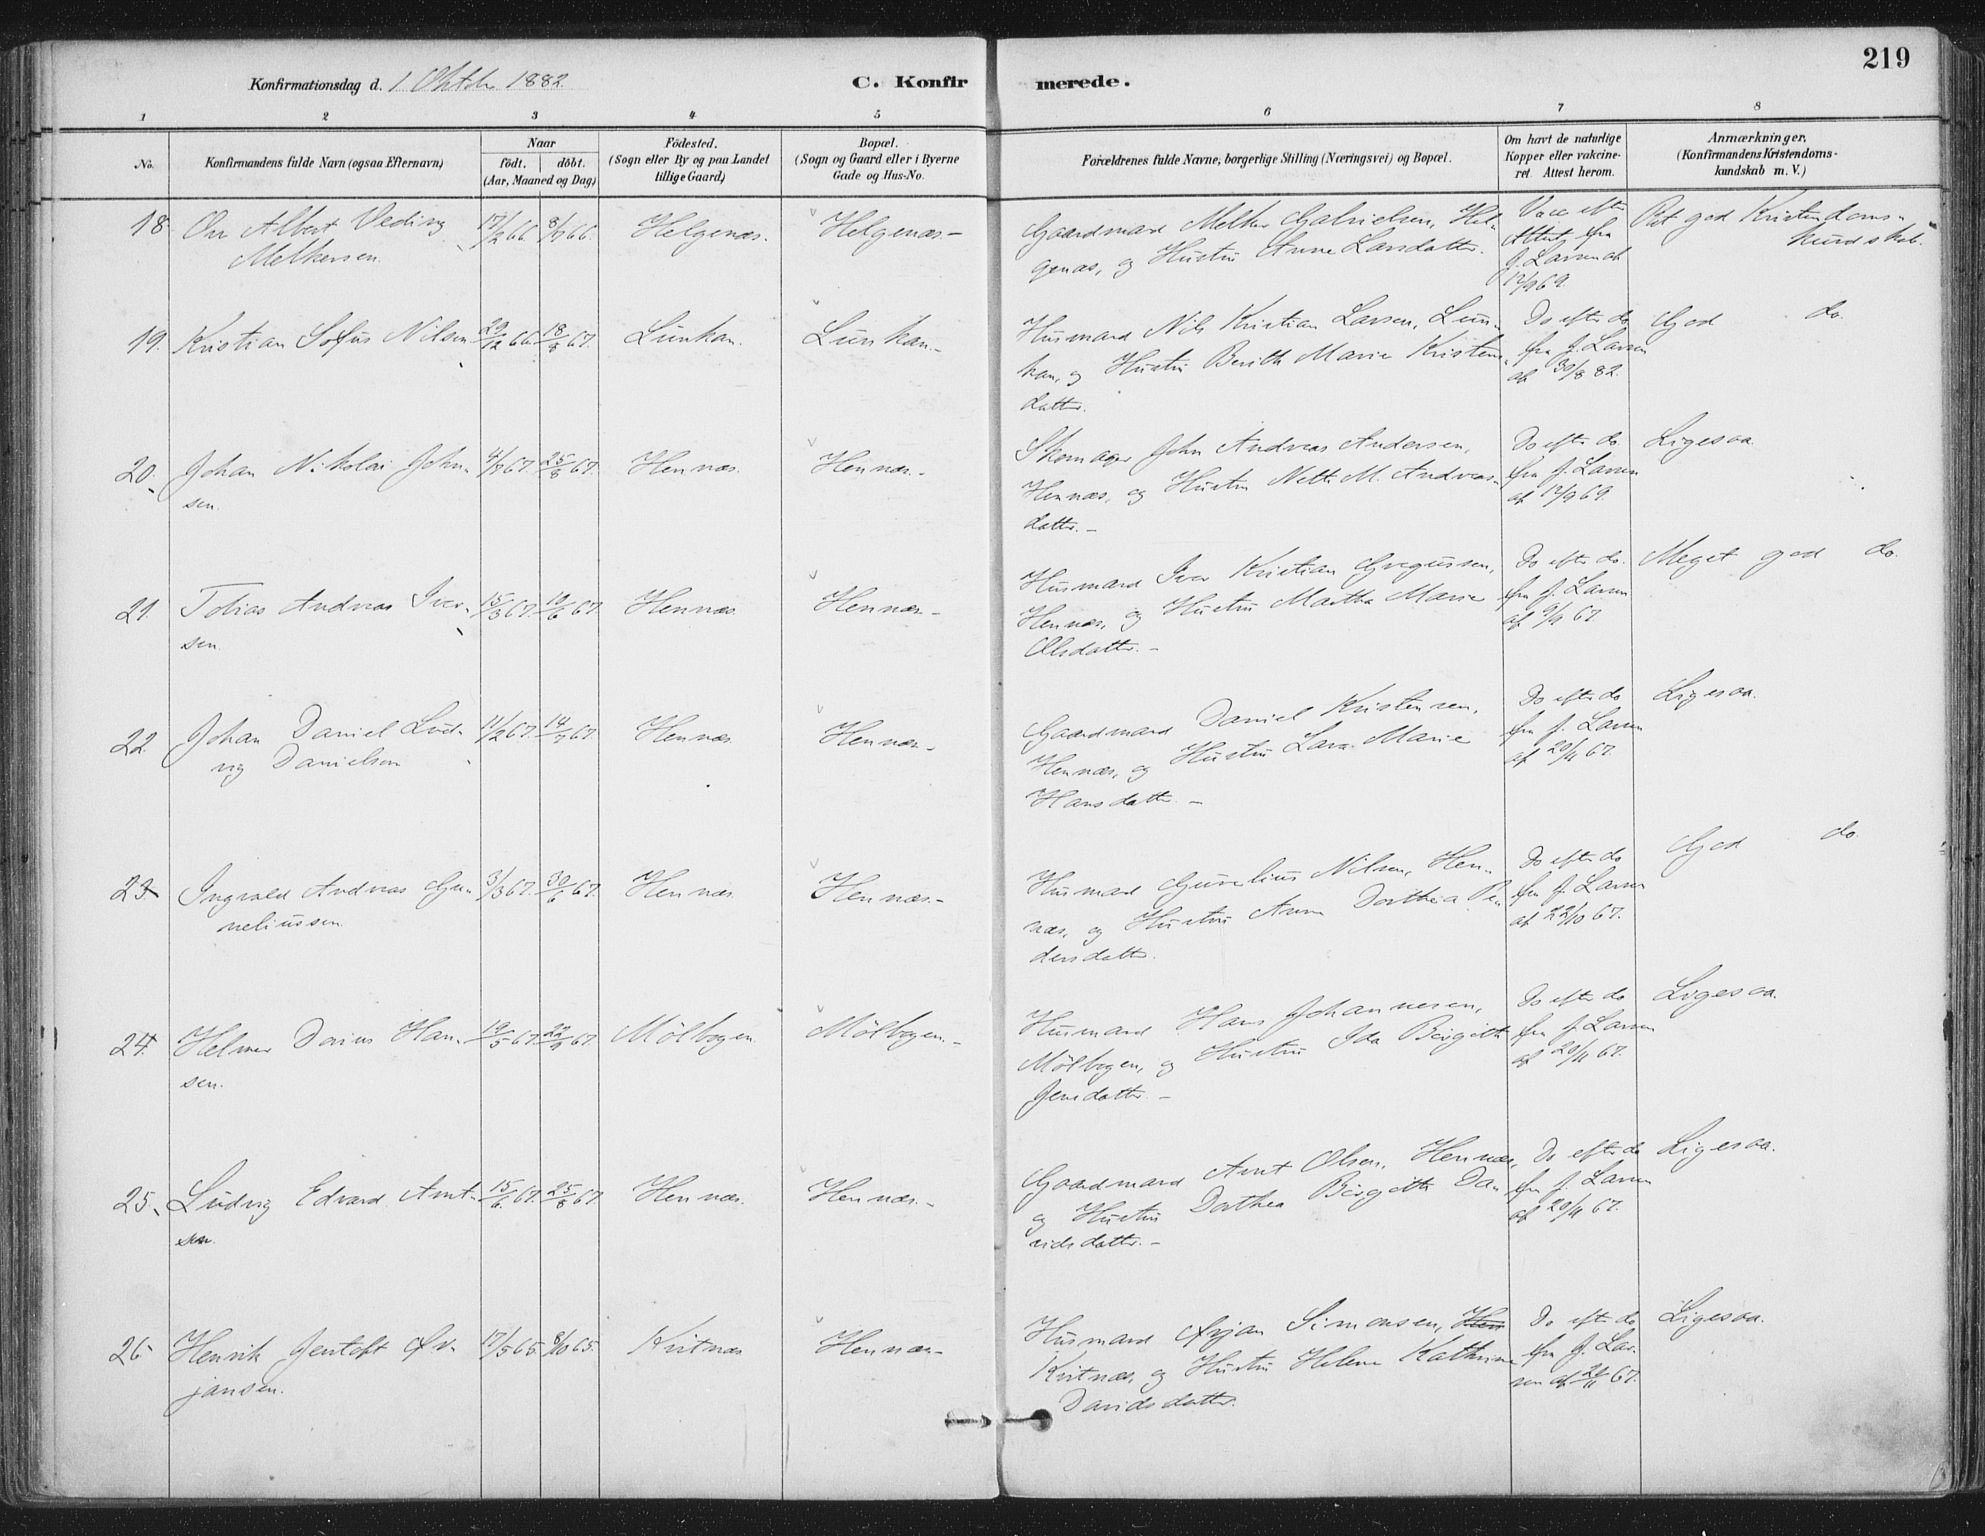 219
Konfirmationsdag d. 1 Oktober 1882.
C. Konfirmerede.
1 2 3 4 5 6 7 8
No.
Konfirmandens fulde Navn (ogsaa Efternavn)
Naar
født. døbt.
(Aar, Maaned og Dag)
Fødested.
(Sogn eller By og paa Landet
tillige Gaard)
Bopæl.
(Sogn og Gaard eller i Byerne
Gade og Hus-No.
Forældrenes fulde Navne, borgerlige Stilling (Næringsvei) og Bopæl.
Om havt de naturlige
Kopper eller vakcine-
ret. Attest herom.
Anmærkninger.
(Konfirmandens Kristendoms-
kundskab m. V.)
18. Ole Albert Veding 17/2 66. 8/7 66. Helgenæs. Helgenæs-
Melkersen.
Gaardmand Melker Gabrielsen, Hel-
genæs, og Hustru Anne Larsdatter.
Vacc efter
Attest fra
J. Larsen af
12/9 69.
Ret god Kristendoms-
kundskab.
19. Kristian Sofus Nilsen 29/12 66. 18/8 67. Lunkan. Lunkan.-
Husmand Nils Kristian Larsen, Lun-
kan, og Hustru Berith Marie Kristens-
datter.
Do efter do
fra J. Larsen
af 30/8 82.
God do.
20. Johan Nikolai John- 4/7 67. 25/8 67. Hennæs. Hennæs.-
sen.
Skomager John Andreas Andersen,
Hennæs, og Hustru Nette M. Andreas-
datter.-
Do efter do
fra J. Larsen
af 12/9 69.
Ligesaa.
21. Tobias Andreas Iver- 15/3 67. 10/6 67. Hennæs. Hennæs.-
sen.
Husmand Iver Kristian Gregussen,
Hennæs, og Hustru Martha Marie
Olsdatter.-
Do efter do.
fra J. Larsen
af 9/9 67.
Meget god do.
22. Johan Daniel Lud- 11/2 67. 14/7 67. Hennæs Hennæs.-
vig Danielsen
Gaardmand Daniel Kristensen,
Hennæs, og Hustru Lava Marie
Hansdatter.-
Do efter do
fra J. Larsen
af 20/11 67.
Ligesaa.
23. Ingvald Andreas Gu- 3/3 67. 30/6 67. Hennæs. Hennæs.-
neliussen.
Husmand Gunelius Nilsen, Hen-
næs, og Hustru Anne Dorthea Pe-
dersdatter.
Do efter do
fra J. Larsen
af 22/10 67.
God do.
24. Helmer Dorius Han- 19/5 67. 22/9 67. Mölbogen. Mölbogen.-
sen.
Husmand Hans Johannesen,
Mölbogen, og Hustru Ida Bergitte
Jensdatter.-
Do efter do
fra J. Larsen
af 20/11 67.
Ligesaa.
25. Ludvig Edvard Arnt- 15/6 67. 25/8 67. Hennæs. Hennæs.-
sen.
Gaardmand Arnt Olsen, Hennæs,
og Hustru Dorthea Birgitte Da-
vidsdatter.-
Do efter do
fra J. Larsen
af 20/11 67.
Ligesaa.
26. Henrik Jentoft Ør- 17/5 65. 8/10 65. Kvitnæs Hennæs.-
jansen.
Husmand Ørjan Simonsen, Hen
Kvitnæs, og Hustru Helene Kathrine
Davidsdatter.
Do efter do
fra J. Lar-
sen af 20/11 67.
Ligesaa.